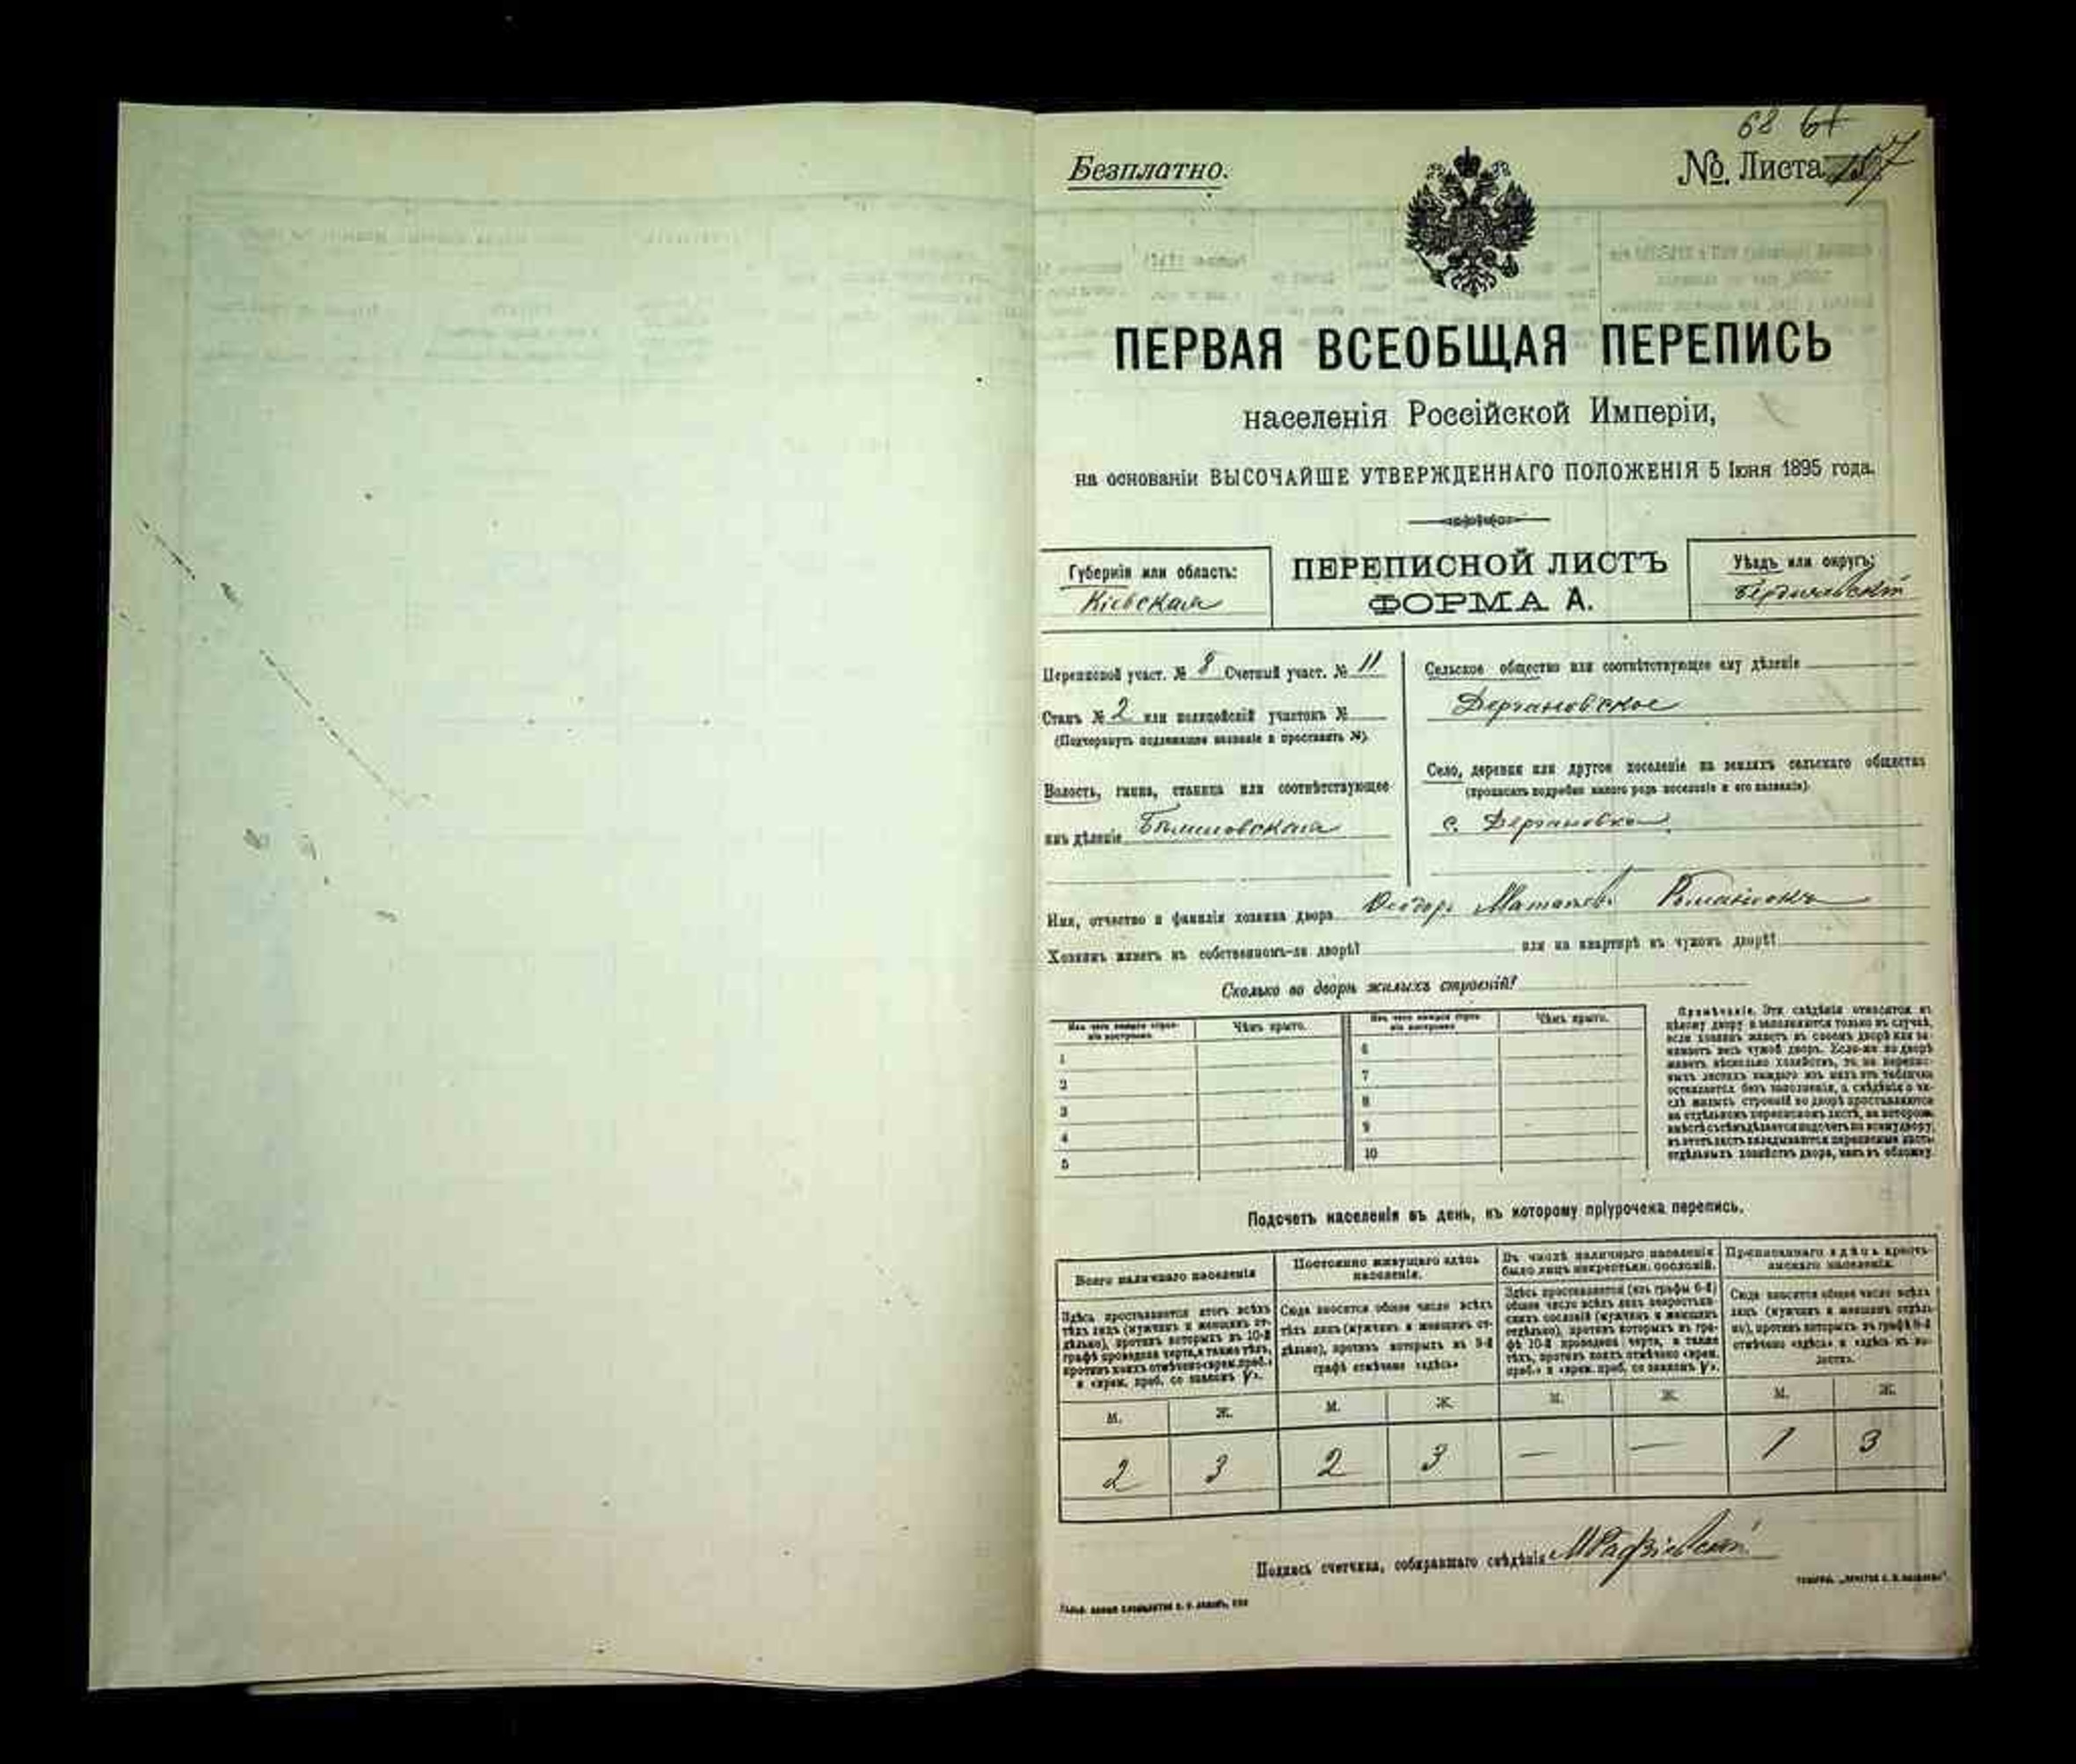 68
Безплатно.
№ Листа
ПЕРВАЯ ВСЕОБЩАЯ ПЕРЕПИСЬ
населенія Россійской Имперіи,
на основаніи ВЫСОЧАЙШЕ УТВЕРЖДЕННАГО ПОЛОЖЕНІЯ 5 Іюня 1895 года.
Губернія или область:
Кіевская
ПЕРЕПИСНОЙ ЛИСТЪ
ФОРМА А.
Уѣздъ или округъ:
Бердичевскій
Переписной участ. № 8 Счетный участ. № 11
Станъ № 2 или полицейскій участокъ №
(Подчеркнуть подлежащее названіе и проставить №).
Волость, гмина, станица или соотвѣтствующее
имъ дѣленіе
Сельское общество или соотвѣтствующее ему дѣленіе
Дергановское
Село, деревня или другое поселеніе на земляхъ сельскаго общества
(прописать подробно какого рода поселеніе и его названіе).
с. Дергановка
Имя, отчество и фамилія хозяина двора Ѳеодоръ
Хозяинъ живетъ въ собственномъ-ли дворѣ? или на квартирѣ въ чужомъ дворѣ?
Сколько во дворѣ жилыхъ строеній?
Изъ чего каждое строе-
ніе построено.
Чѣмъ крыто.
Изъ чего каждое строе-
ніе построено.
Чѣмъ крыто.
1
2
3
4
5
6
7
8
9
10
Примѣчаніе. Эти свѣдѣнія относятся къ
цѣлому двору и заполняются только въ случаѣ,
если хозяинъ живетъ въ своемъ дворѣ или за-
нимаетъ весь чужой дворъ. Если-же во дворѣ
живетъ нѣсколько хозяйствъ, то на перепис-
ныхъ листахъ каждаго изъ нихъ эта табличка
оставляется безъ заполненія, а свѣдѣнія о чи-
слѣ жилыхъ строеній во дворѣ проставляются
на отдѣльномъ переписномъ листѣ, на которомъ
вмѣстѣ съ тѣмъ дѣлается подсчетъ по всему двору;
въ этотъ листъ вкладываются переписные листы
отдѣльныхъ хозяйствъ двора, какъ въ обложку.
Подсчетъ населенія въ день, къ которому пріурочена перепись.
Всего наличнаго населенія
Постоянно живущаго здѣсь
населенія.
Въ числѣ наличнаго населенія
было лицъ некрестьян. сословій.
Приписаннаго здѣсь кресть-
янскаго населенія.
Здѣсь проставляется итогъ всѣхъ
тѣхъ лицъ (мужчинъ и женщинъ от-
дѣльно), противъ которыхъ въ 10-й
графѣ проведена черта, а также тѣхъ,
противъ коихъ отмѣчено «врем. преб.»
и «врем. преб. со знакомъ V».
Сюда вносится общее число всѣхъ
тѣхъ лицъ (мужчинъ и женщинъ от-
дѣльно), противъ которыхъ въ 9-й
графѣ отмѣчено «здѣсь»
Здѣсь проставляется (изъ графы 6-й)
общее число всѣхъ лицъ некрестьян-
скихъ сословій (мужчинъ и женщинъ
отдѣльно), противъ которыхъ въ гра-
фѣ 10-й проведена черта, а также
тѣхъ, противъ коихъ отмѣчено «врем.
преб.» и «врем. преб. со знакомъ V».
Сюда вносится общее число всѣхъ
лицъ (мужчинъ и женщинъ отдѣль-
но), противъ которыхъ въ графѣ 8-й
отмѣчено «здѣсь» и «здѣсь въ во-
лости».
М. Ж. М. Ж. М. Ж. М. Ж.
2 3 2 3 — — 1 3
Подпись счетчика, собиравшаго свѣдѣнія